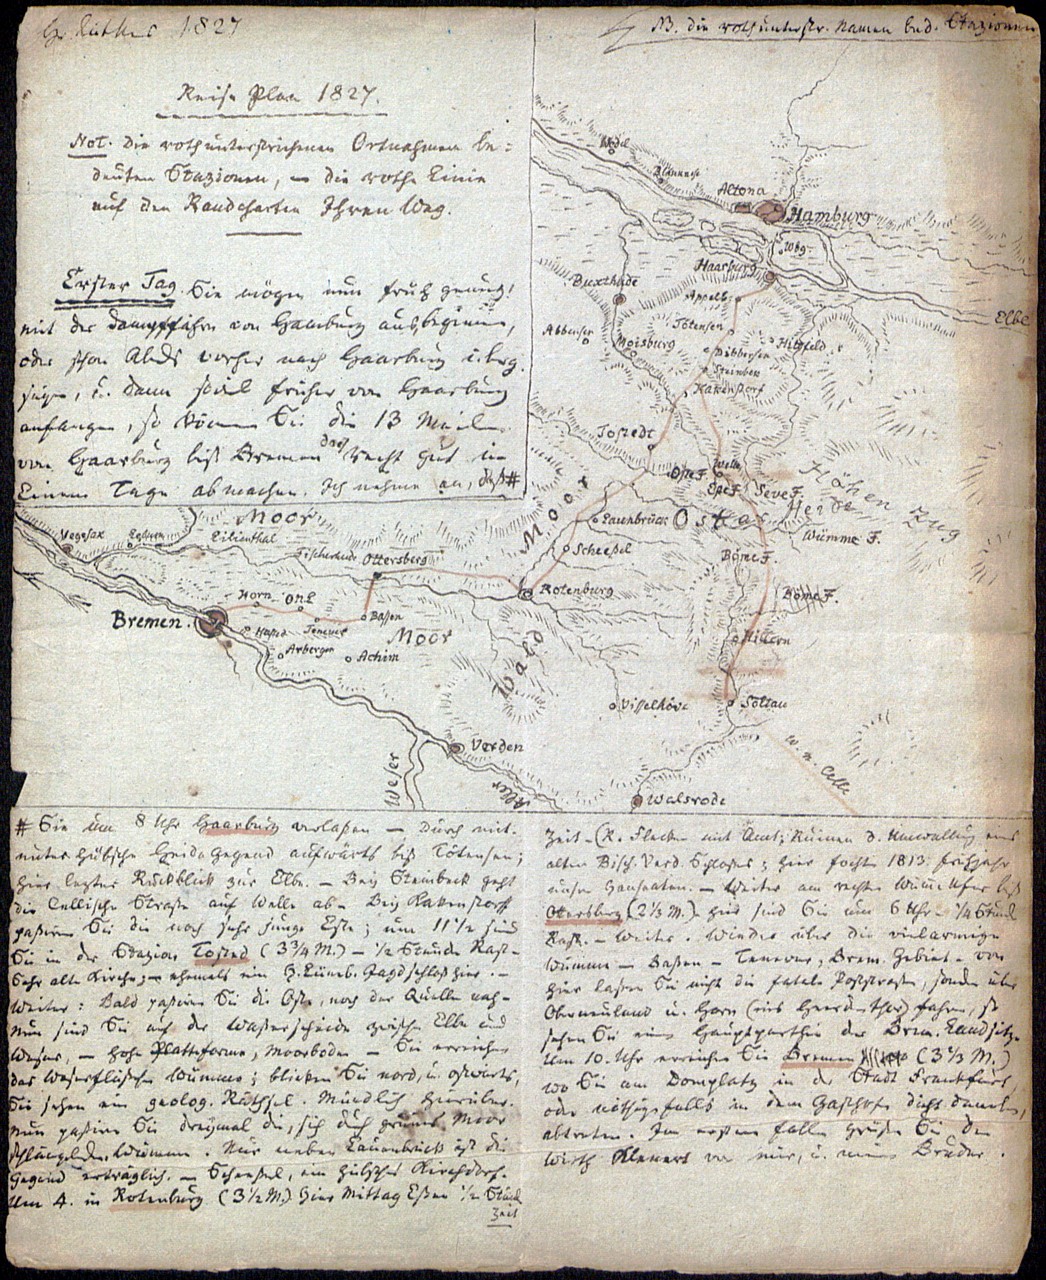 1827
NB. die roth unterstr. Namen bed. Stazionen
Reise Plan 1827.
Not. Die rothunterstrichenen Ortnahmen be-
deuten Stazionen, die rothe Linie
auf den Randcharten Ihren Weg.
Erster Tag. Sie mögen nun früh genug,
mit der Dampffähre von Haarburg
oder schon Abds vorher nach Haarburg überg.
u. dann so viel früher von Haarburg
anfangen, so können Sie die 13 Meilen
von Haarburg biß Bremen doch recht gut in
Einem Tage abmachen. Ich nehme an, daß #
Wedel
Blankenese
Altona
Hamburg
Wbg
Haarburg
Buxthude
Appelb.
Tötensen
Abbensen
Moisburg
Hittfeld
Dibbersen
Steinbek
Kakensdorf
Elbe
Tostedt
Welle
Oste F.
Este F.
Seve F.
Höhen Zug
Heide
Moor
Lauenbrück
Wümme F.
Scheeßel
Böme F.
Böme F.
Rotenburg
Hillern
Soltau
W. n. Celle
Visselhöve
Walsrode
Moor
Vegesak
Lilienthal
Fischerhude
Ottersberg
Horn
Bremen
Hasted
Tenever
Baßen
Arbergen
Achim
Moor
Wald
Verden
Weser
Aller
# Sie um 8 Uhr Haarburg verlaßen — Durch mit-
unter hübsche Heide Gegend aufwärts biß Tötensen;
hier letzter Rückblick zur Elbe. — Bey Steinbeck geht
die Cellische Straße auf Welle ab — Bey Kakenstorff
paßiren Sie die noch sehr junge Este; um 11½ sind
Sie in der Stazion Tosted (3¾ M.) — ½ Stunde Rast —
Sehr alte Kirche; — ehemals ein H. Lüneb. Jagdschloß hier. —
Weiter: Bald paßiren Sie die Oste, noch der Quelle nah —
Nun sind Sie auf der Wasserscheide zwischen Elbe und
Weser, — hohe Plattforme, Moorboden — Sie erreichen
das Weserflüßchen Wümme; blicken Sie nord, u. ostwärts,
Sie sehen ein geolog. Räthsel. Mündlich hierüber.
Nun paßiren Sie dreymal die, sich durch grünes Moor
schlängelnde Wümme. Nur neben Lauenbrück ist die
Gegend erträglich. — Scheeßel, ein hübsches Kirchdorf.
Um 4. in Rotenburg (3½ M.) Hier Mittag Eßen ½ Stund
Zeit
Zeit — (K. Flecken mit Amt; Ruinen d. Umwallung eines
alten Bisch. Verd. Schloßes; hier focht 1813. Frühjahr
unsere Hanseaten. — Weiter am rechten Wümme Ufer biß
Ottersberg (2⅓ M.) hier sind Sie um 6 Uhr — ¼ Stund
Rast. — Weiter. Wieder über die vielarmige
Wümme — Baßen — Tenever, Brem. Gebiet — von
hier laßen Sie nicht die fatale Poststraße, sondern über
Oberneuland u. Horn (ins Heerdenthor) fahren, so
sehen Sie eine Hauptparthie der Brem. Landsitze
Um 10. Uhr erreichen Sie Bremen (3⅓ M.)
wo Sie am Domplatz in der Stadt Frankfurt,
oder nöthigenfalls in dem Gasthofe dicht daneben,
abtreten. Im ersten Falle grüßen Sie den
Wirth von mir, u. meinem Bruder.